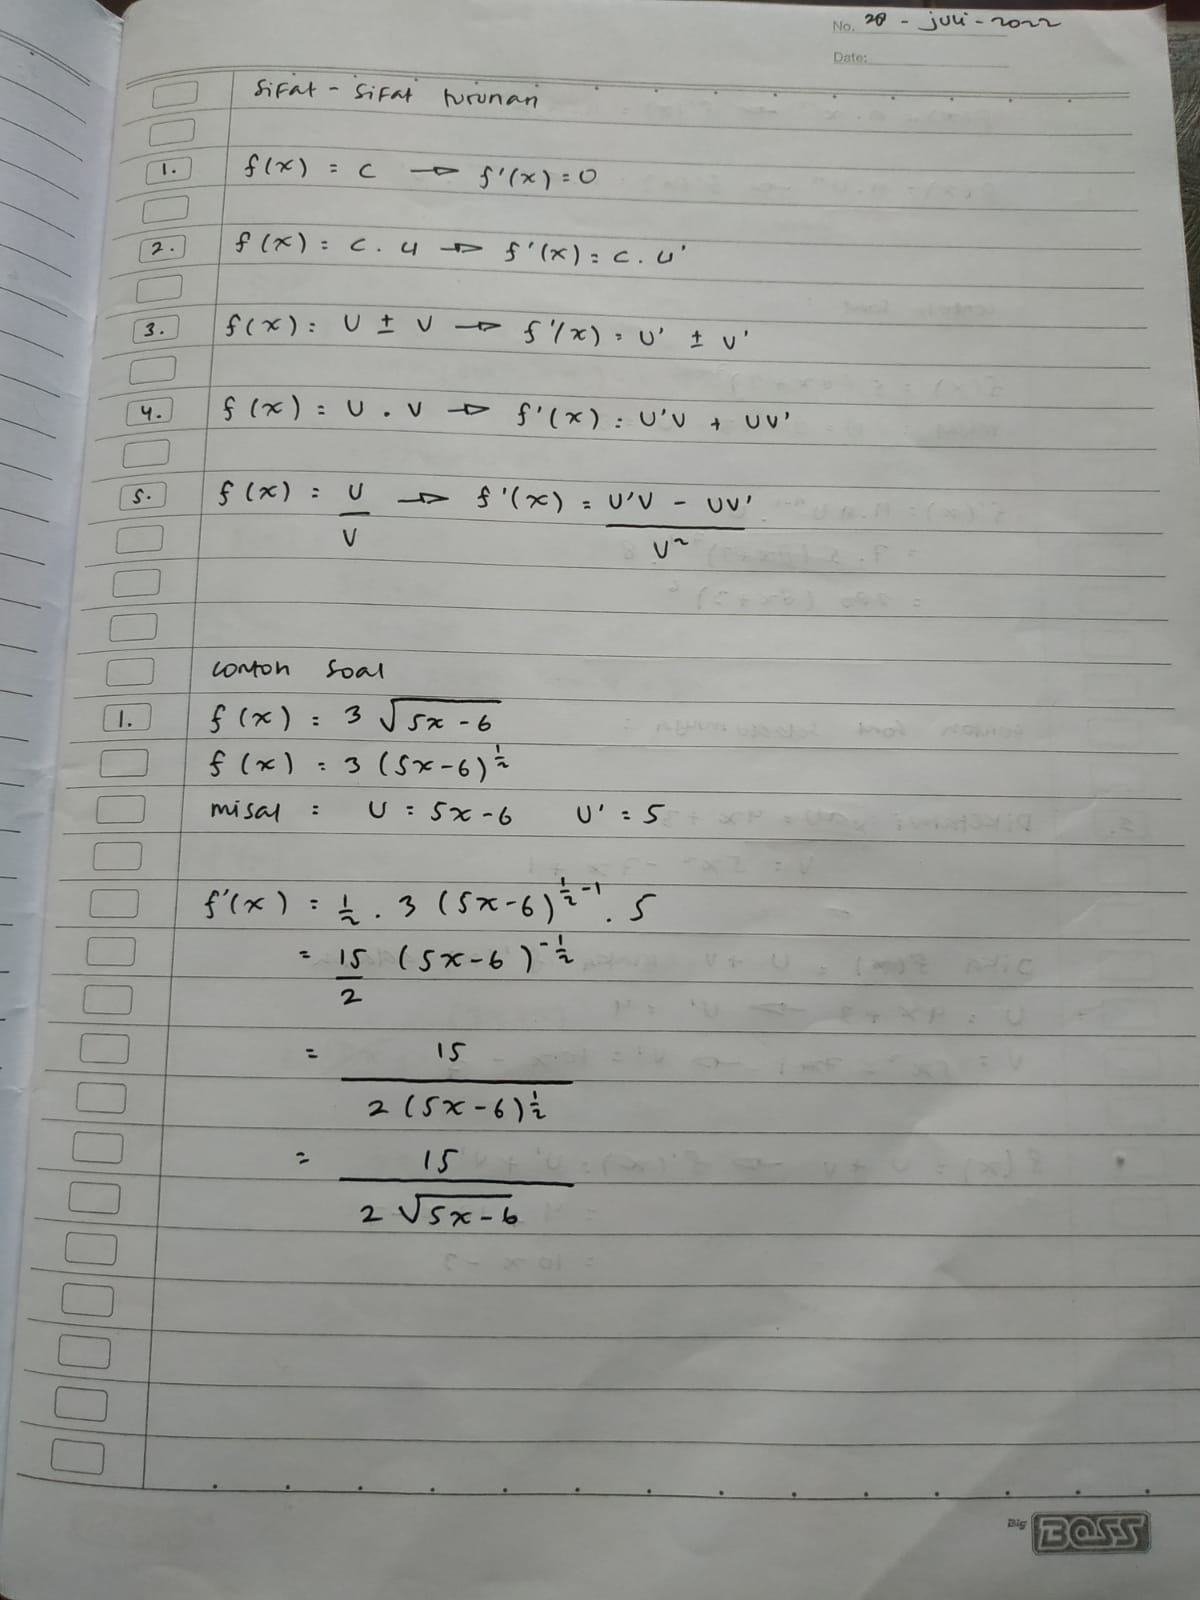 No. 20 - juli - 2022
Date:
Sifat - Sifat turunan
1. f(x) = c → f'(x) = 0
2. f(x) = c . u → f'(x) = c . u'
3. f(x) = U ± V → f'(x) = U' ± V'
4. f(x) = U . V → f'(x) = U'V + UV'
5. f(x) = U/V → f'(x) = (U'V - UV')/V²
contoh soal
1. f(x) = 3 √(5x-6)
f(x) = 3 (5x-6)^(1/2)
misal = U = 5x-6 U' = 5
f'(x) = 1/2 . 3 (5x-6)^(1/2 -1) . 5
= 15/2 (5x-6)^(-1/2)
= 15/(2 (5x-6)^(1/2))
= 15/(2 √(5x-6))
Big BOSS